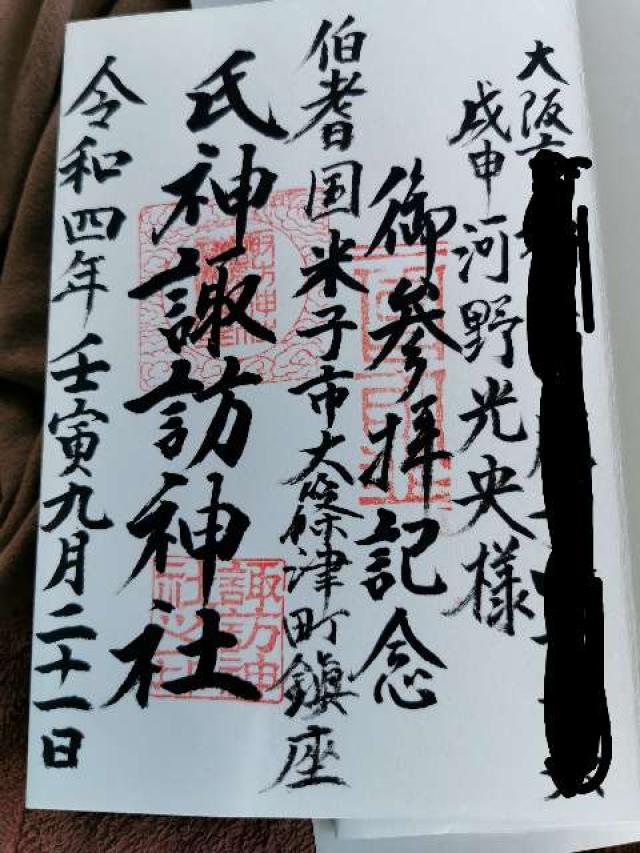 大阪
戊申 河野光央様
御参拝記念
伯耆国米子市大篠津町鎮座
氏神諏訪神社
令和四年壬寅九月二十一日
諏訪神